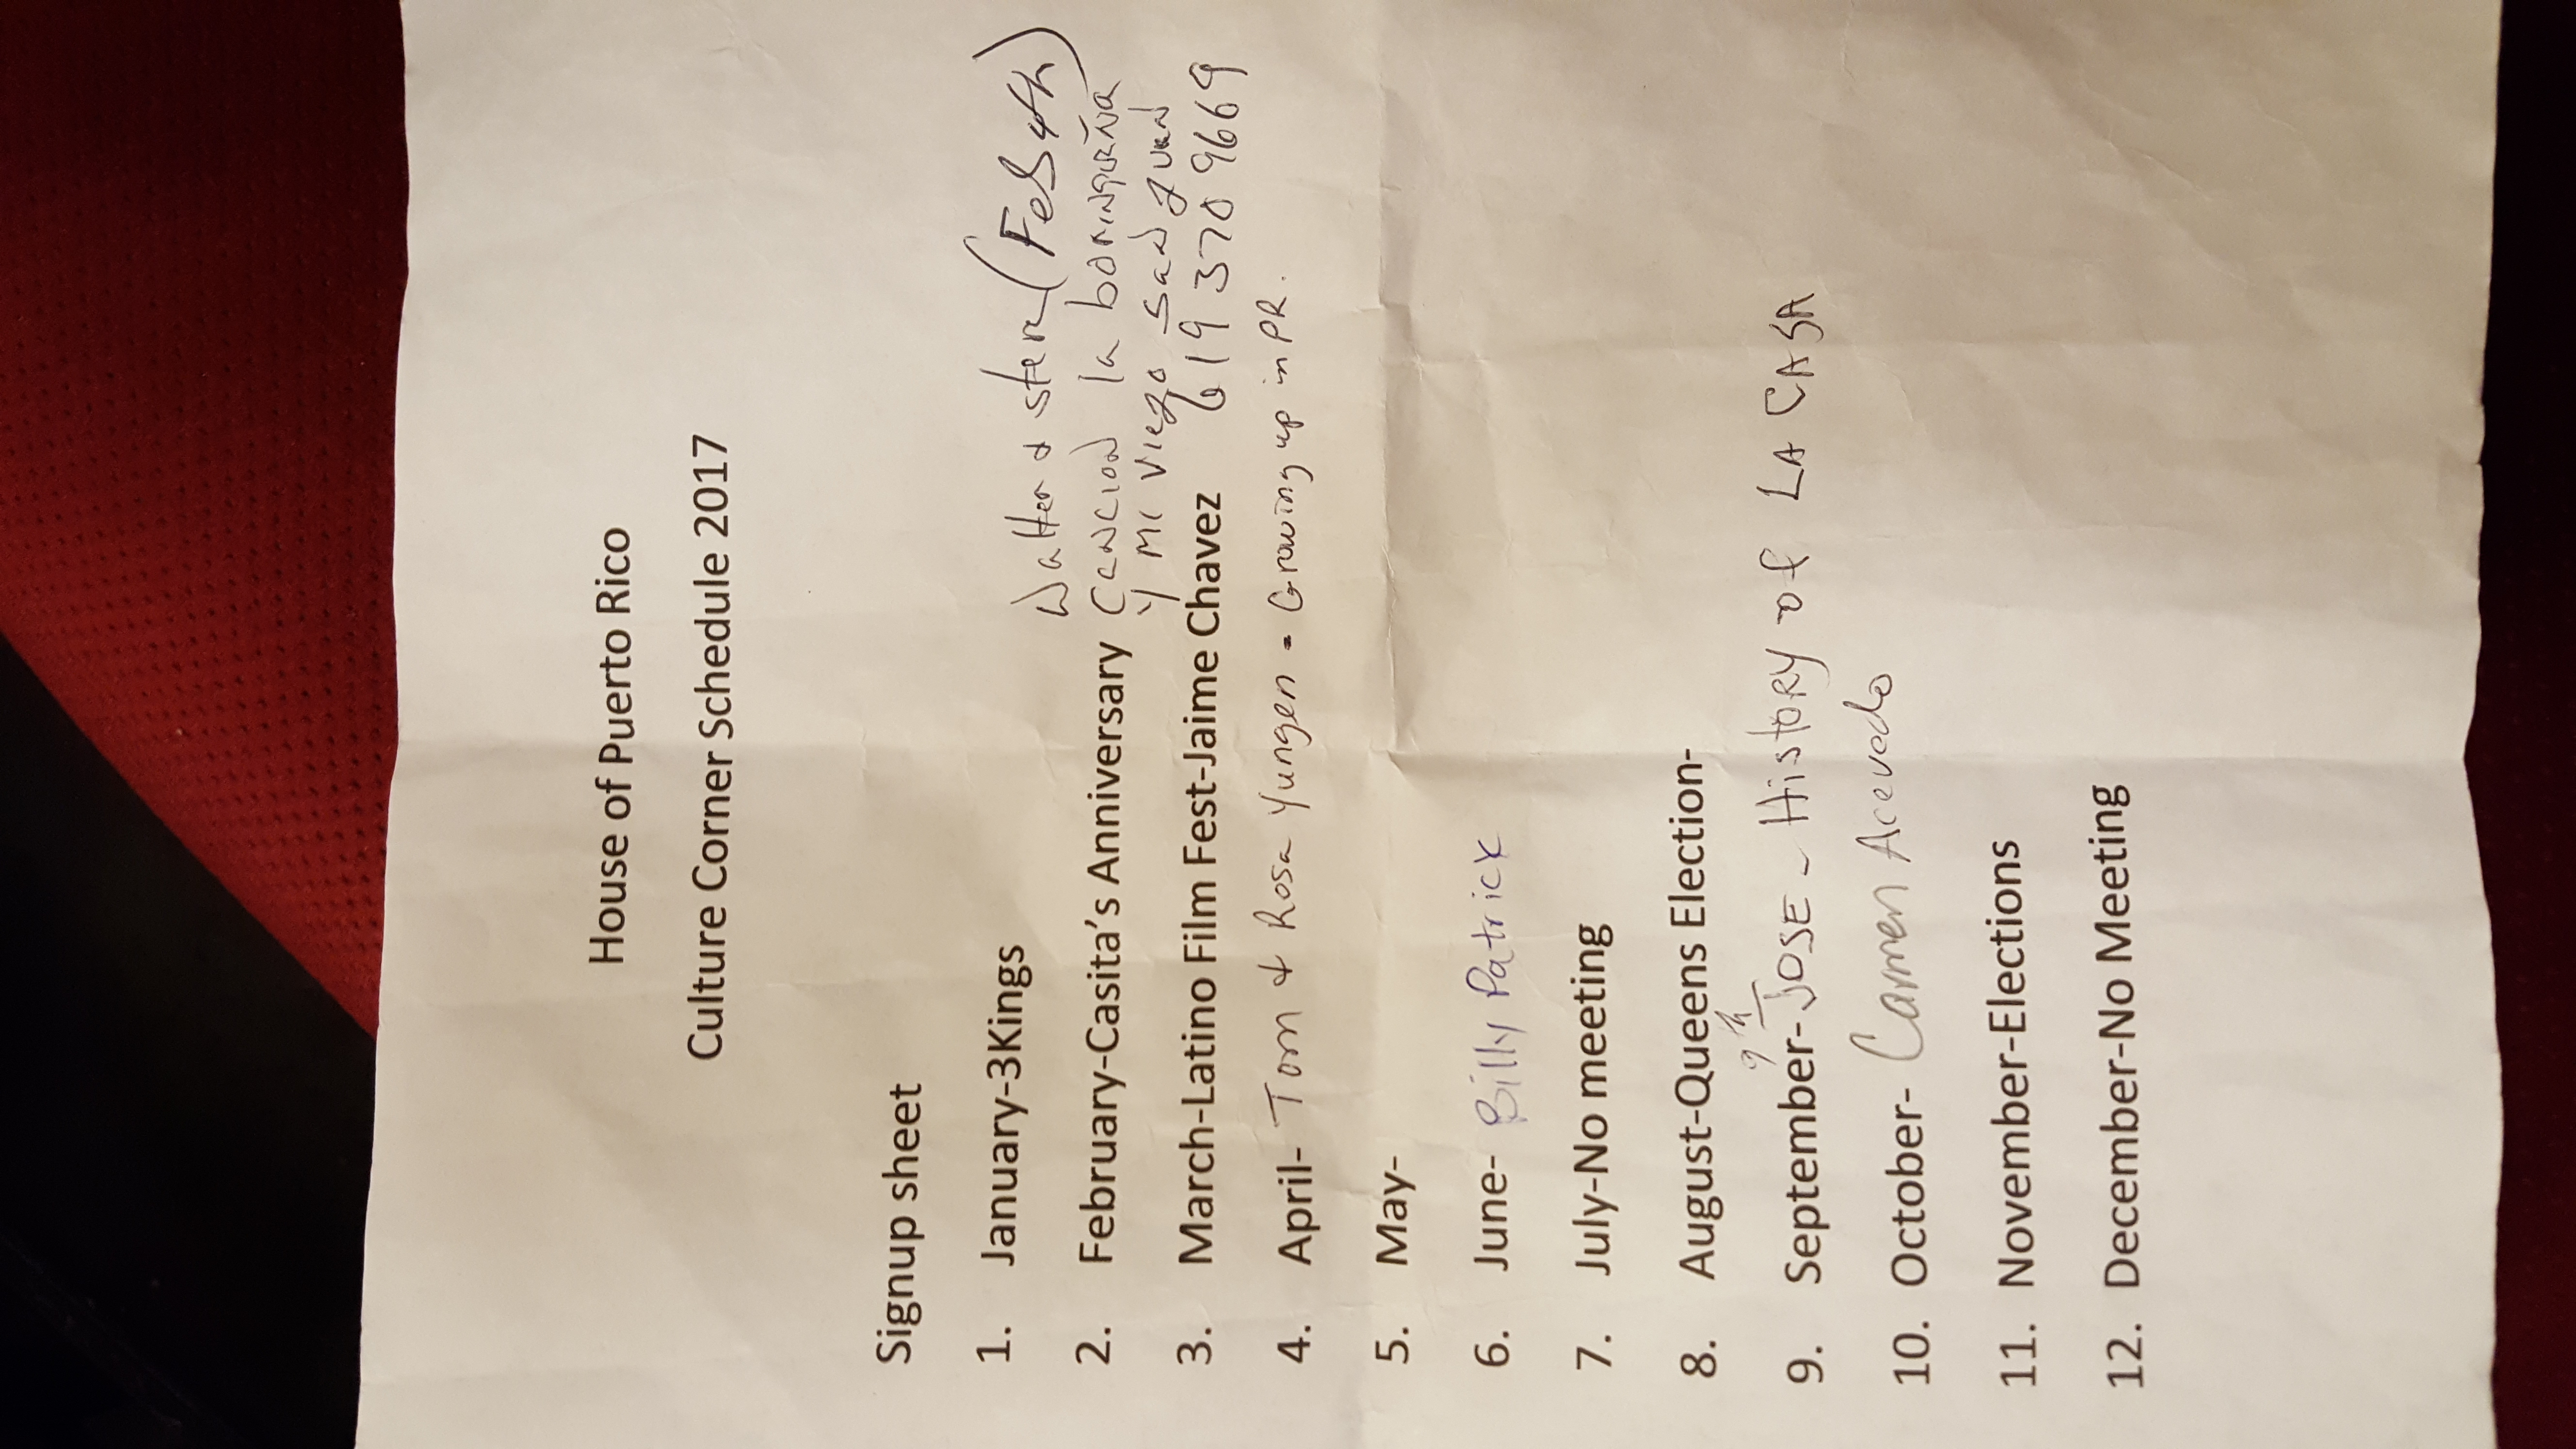 House of Puerto Rico
Culture Corner Schedule 2017
Signup sheet
1. January-3Kings
Walter & Steve (Feb 4th)
2. February-Casita's Anniversary Cancion la borinqueña
y Mi Viejo San Juan
3. March-Latino Film Fest-Jaime Chavez 619 370 9669
4. April- Tom & Rosa Yungen - Growing up in PR.
5. May-
6. June- Billy Patrick
7. July-No meeting
8. August-Queens Election-
9th
9. September- JOSE - HisTORY of LA CASA
10. October- Carmen Acevedo
11. November-Elections
12. December-No Meeting